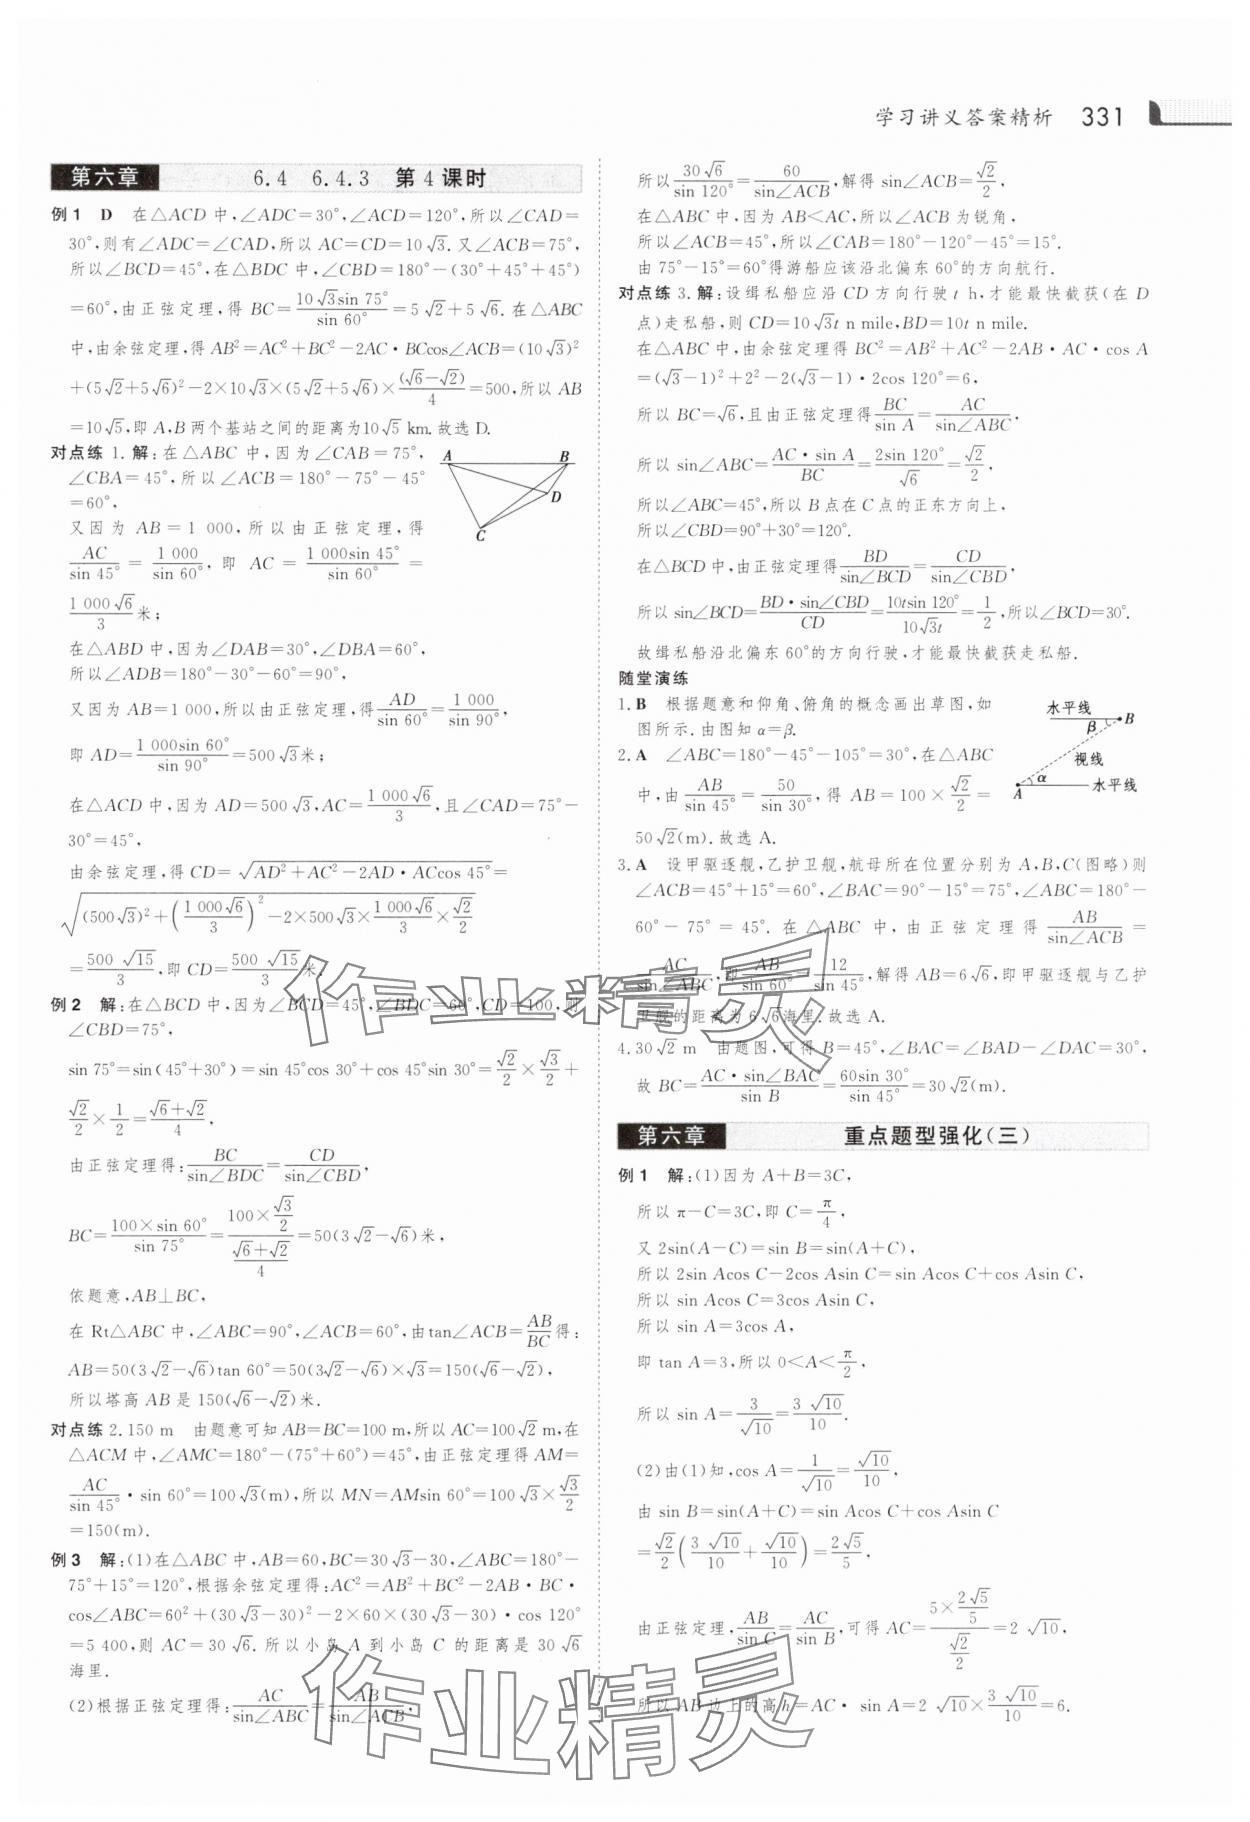 学习讲义答案精析 331
第六章 6.4 6.4.3 第4课时
例1 D 在△ACD中,∠ADC=30°,∠ACD=120°,所以∠CAD=
30°,则有∠ADC=∠CAD,所以AC=CD=10√3.又∠ACB=75°,
所以∠BCD=45°,在△BDC中,∠CBD=180°-(30°+45°+45°)
=60°,由正弦定理,得BC=10√3sin 75°/sin 60°=5√2+5√6.在△ABC
中,由余弦定理,得AB²=AC²+BC²-2AC·BCcos∠ACB=(10√3)²
+(5√2+5√6)²-2×10√3×(5√2+5√6)×(√6-√2)/4=500,所以AB
=10√5,即A,B两个基站之间的距离为10√5 km.故选D.
对点练1.解:在△ABC中,因为∠CAB=75°,
∠CBA=45°,所以∠ACB=180°-75°-45°
=60°,
又因为AB=1 000,所以由正弦定理,得
AC/sin 45°=1 000/sin 60°,即AC=1 000sin 45°/sin 60°=
1 000√6/3米;
A B D C
在△ABD中,因为∠DAB=30°,∠DBA=60°,
所以∠ADB=180°-30°-60°=90°,
又因为AB=1 000,所以由正弦定理得AD/sin 60°=1 000/sin 90°,
即AD=1 000sin 60°/sin 90°=500√3米;
在△ACD中,因为AD=500√3,AC=1 000√6/3,且∠CAD=75°-
30°=45°,
由余弦定理,得CD=√(AD²+AC²-2AD·ACcos 45°)=
√((500√3)²+(1 000√6/3)²-2×500√3×1 000√6/3×√2/2)
=500√15/3,即CD=500√15/3米.
例2 解:在△BCD中,因为∠BCD=45°,∠BDC=60°,CD=100,则
∠CBD=75°,
sin 75°=sin(45°+30°)=sin 45°cos 30°+cos 45°sin 30°=√2/2×√3/2+
√2/2×1/2=(√6+√2)/4,
由正弦定理得:BC/sin∠BDC=CD/sin∠CBD,
BC=100×sin 60°/sin 75°=(100×√3/2)/((√6+√2)/4)=50(3√2-√6)米,
依题意,AB⊥BC,
在Rt△ABC中,∠ABC=90°,∠ACB=60°,由tan∠ACB=AB/BC得:
AB=50(3√2-√6)tan 60°=50(3√2-√6)×√3=150(√6-√2),
所以塔高AB是150(√6-√2)米.
对点练2.150 m 由题意可知AB=BC=100 m,所以AC=100√2 m,在
△ACM中,∠AMC=180°-(75°+60°)=45°,由正弦定理得AM=
AC/sin 45°·sin 60°=100√3(m),所以MN=AMsin 60°=100√3×√3/2
=150(m).
例3 解:(1)在△ABC中,AB=60,BC=30√3-30,∠ABC=180°-
75°+15°=120°,根据余弦定理得:AC²=AB²+BC²-2AB·BC·
cos∠ABC=60²+(30√3-30)²-2×60×(30√3-30)·cos 120°
=5 400,则AC=30√6.所以小岛A到小岛C的距离是30√6
海里.
(2)根据正弦定理得:AC/sin∠ABC=AB/sin∠ACB.
所以30√6/sin 120°=60/sin∠ACB,解得sin∠ACB=√2/2,
在△ABC中,因为AB<AC,所以∠ACB为锐角,
所以∠ACB=45°,所以∠CAB=180°-120°-45°=15°.
由75°-15°=60°得游船应该沿北偏东60°的方向航行.
对点练3.解:设缉私船应沿CD方向行驶t h,才能最快截获(在D
点)走私船,则CD=10√3t n mile,BD=10t n mile.
在△ABC中,由余弦定理得BC²=AB²+AC²-2AB·AC·cos A
=(√3-1)²+2²-2(√3-1)·2cos 120°=6,
所以BC=√6,且由正弦定理得BC/sin A=AC/sin∠ABC.
所以sin∠ABC=AC·sin A/BC=2sin 120°/√6=√2/2,
所以∠ABC=45°,所以B点在C点的正东方向上,
所以∠CBD=90°+30°=120°.
在△BCD中,由正弦定理得BD/sin∠BCD=CD/sin∠CBD,
所以sin∠BCD=BD·sin∠CBD/CD=10tsin 120°/10√3t=1/2,所以∠BCD=30°.
故缉私船沿北偏东60°的方向行驶,才能最快截获走私船.
随堂演练
1.B 根据题意和仰角、俯角的概念画出草图,如
图所示.由图知α=β.
水平线 β B 视线 α A 水平线
2.A ∠ABC=180°-45°-105°=30°,在△ABC
中,由AB/sin 45°=50/sin 30°,得AB=100×√2/2=
50√2(m).故选A.
3.A 设甲驱逐舰,乙护卫舰,航母所在位置分别为A,B,C(图略)则
∠ACB=45°+15°=60°,∠BAC=90°-15°=75°,∠ABC=180°-
60°-75°=45°.在△ABC中,由正弦定理得AB/sin∠ACB=
AC/sin∠ABC,即AB/sin 60°=12/sin 45°,解得AB=6√6,即甲驱逐舰与乙护
卫舰的距离为6√6海里.故选A.
4.30√2 m 由题图,可得B=45°,∠BAC=∠BAD-∠DAC=30°,
故BC=AC·sin∠BAC/sin B=60sin 30°/sin 45°=30√2(m).
第六章 重点题型强化(三)
例1 解:(1)因为A+B=3C,
所以π-C=3C,即C=π/4,
又2sin(A-C)=sin B=sin(A+C),
所以2sin Acos C-2cos Asin C=sin Acos C+cos Asin C,
所以sin Acos C=3cos Asin C,
所以sin A=3cos A,
即tan A=3,所以0<A<π/2,
所以sin A=3/√10=3√10/10.
(2)由(1)知,cos A=1/√10=√10/10,
由sin B=sin(A+C)=sin Acos C+cos Asin C
=√2/2(3√10/10+√10/10)=2√5/5,
由正弦定理,AB/sin C=AC/sin B,可得AC=(5×2√5/5)/(√2/2)=2√10,
所以AB边上的高h=AC·sin A=2√10×3√10/10=6.
作业精灵
作业精灵